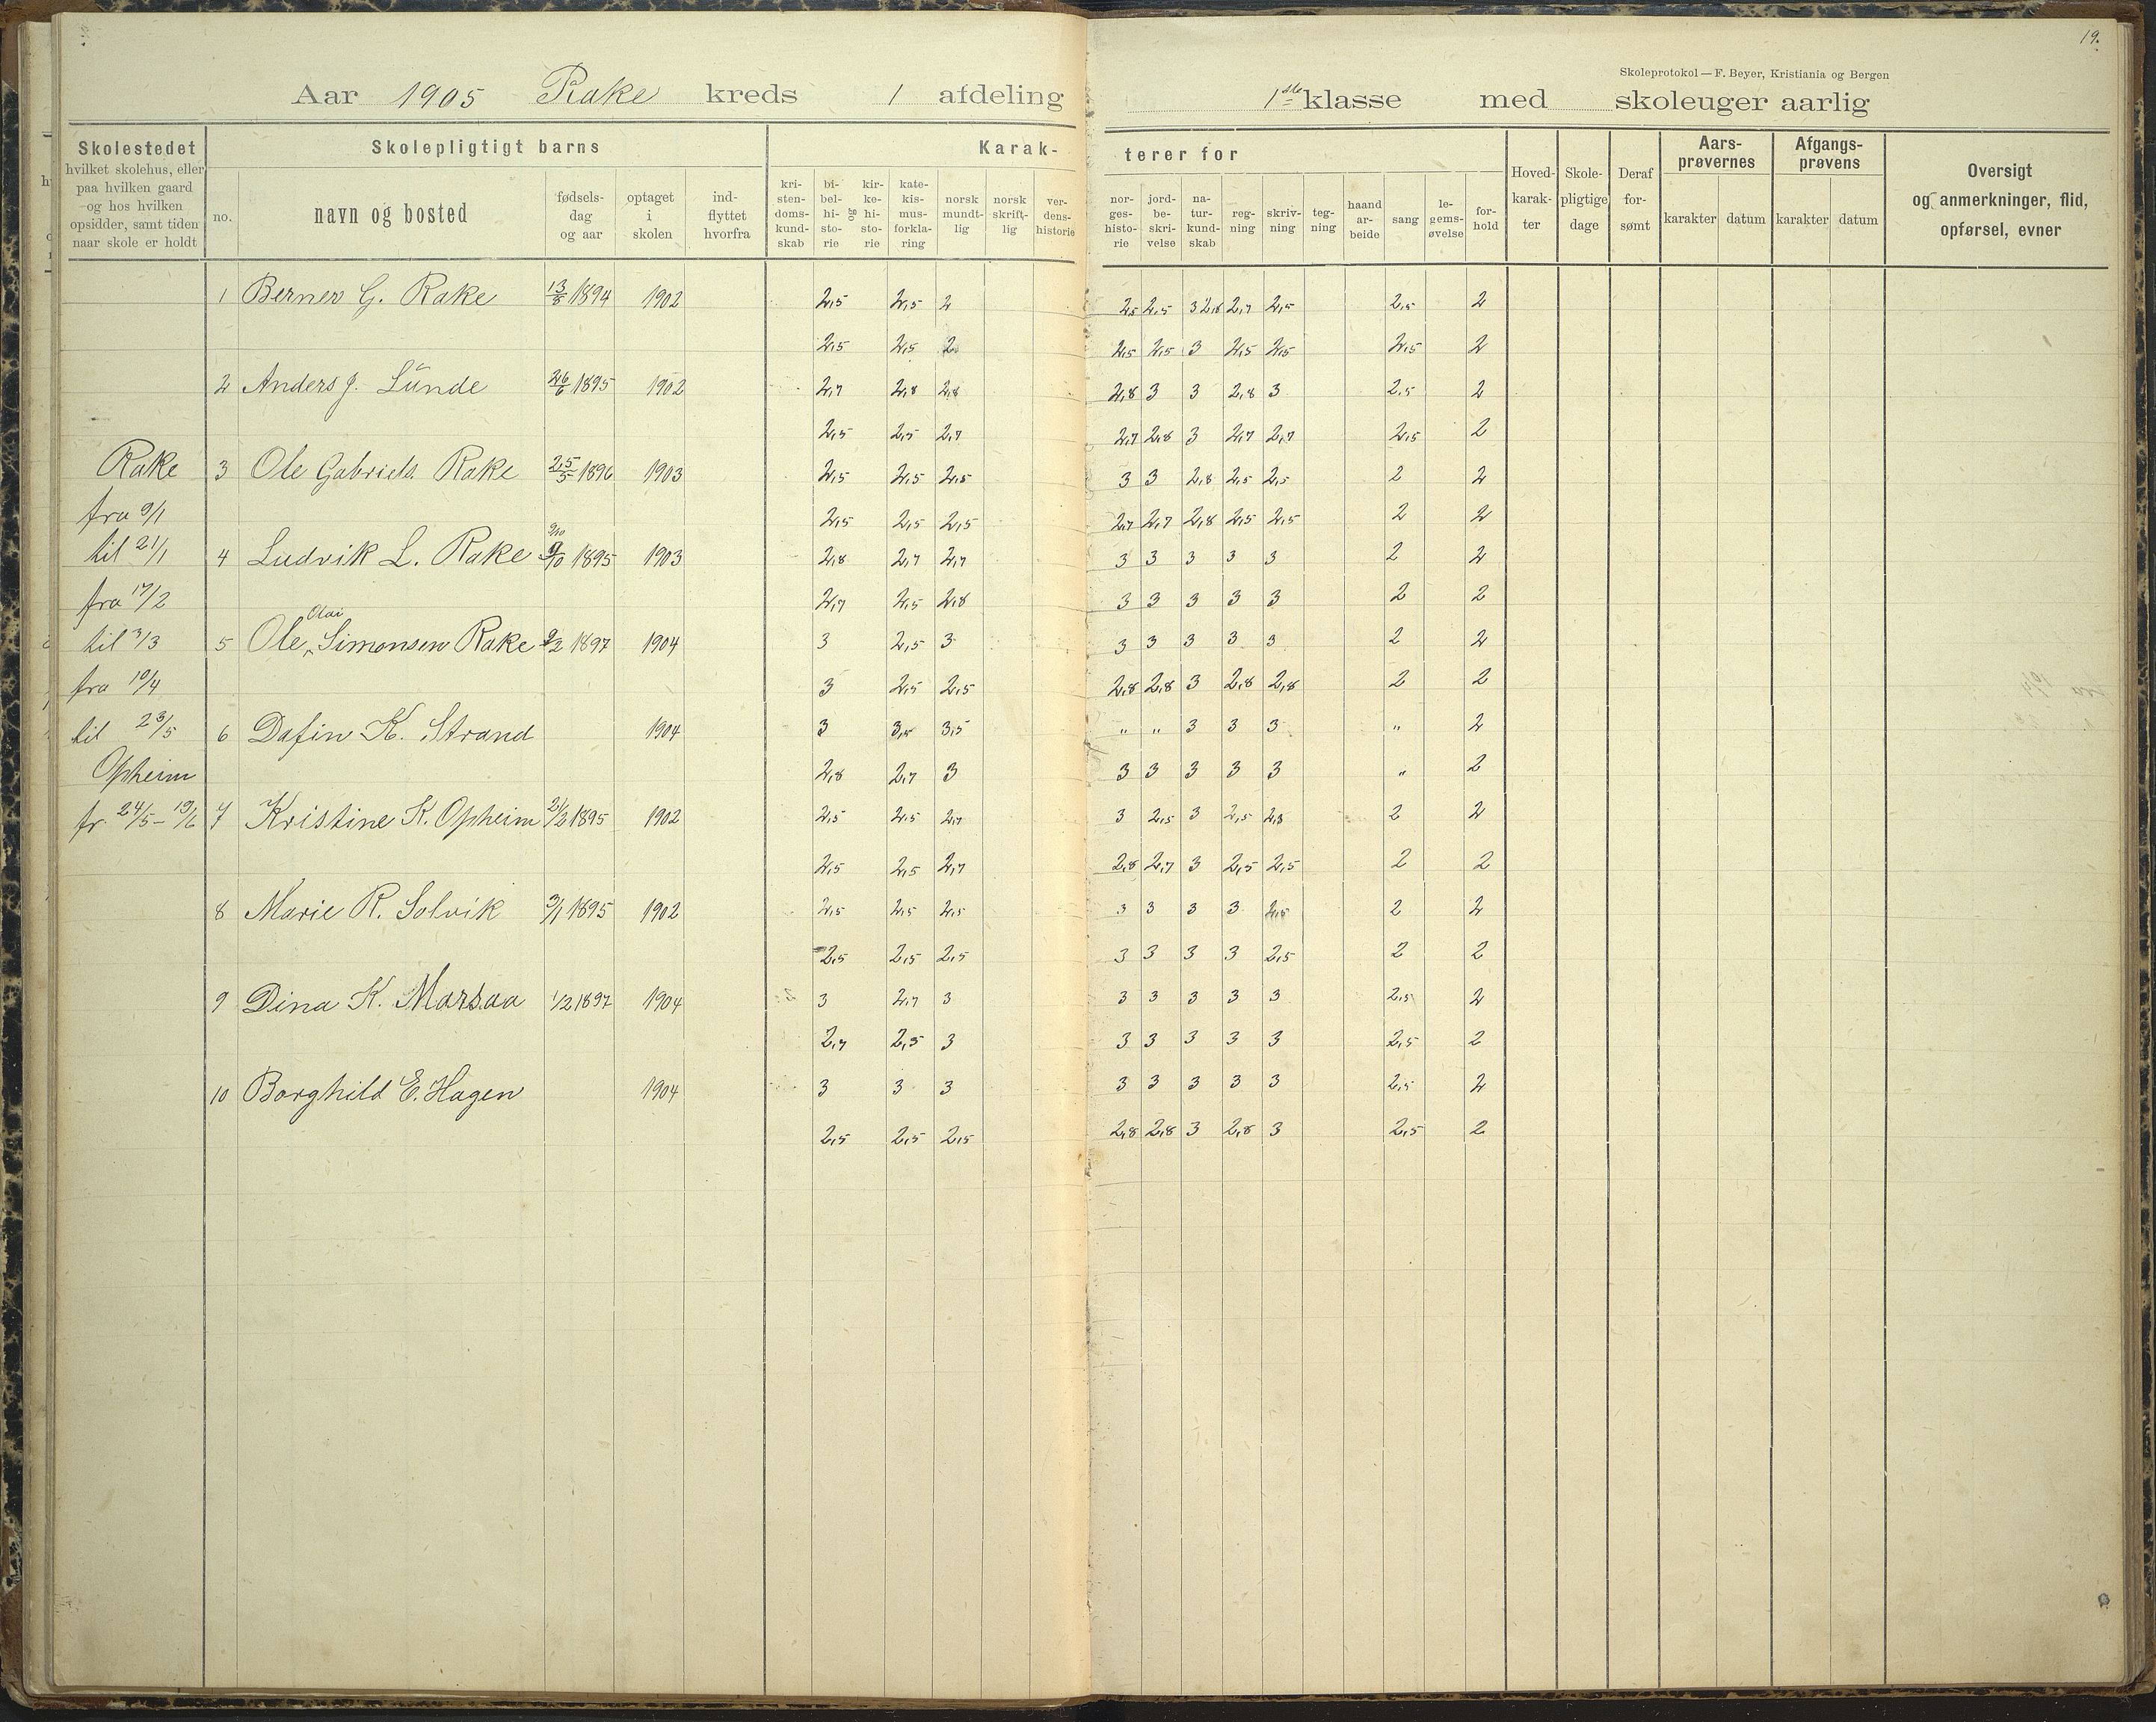 19.
Skoleprotokol — F. Beyer, Kristiania og Bergen
Aar 1905 Rake kreds 1 afdeling 1ste klasse med skoleuger aarlig
Skolestedet
hvilket skolehus, eller
paa hvilken gaard
og hos hvilken
opsidder, samt tiden
naar skole er holdt
Skolepligtigt barns
no.
navn og bosted
fødsels-
dag
og aar
optaget
i
skolen
ind-
flyttet
hvorfra
Karak-
terer for
kri-
sten-
doms-
kund-
skab
bi-
bel-
hi-
sto-
rie
og
kir-
ke-
hi-
sto-
rie
kate-
kis-
mus-
forkla-
ring
norsk
mundt-
lig
norsk
skrift-
lig
ver-
dens-
historie
nor-
ges-
histo-
rie
jord-
be-
skri-
velse
na-
tur-
kund-
skab
reg-
ning
skriv-
ning
teg-
ning
haand
ar-
beide
sang
le-
gems-
øvelse
for-
hold
Hoved-
karak-
ter
Skole-
pligtige
dage
Deraf
for-
sømt
Aars-
prøvernes
karakter datum
Afgangs-
prøvens
karakter datum
Oversigt
og anmerkninger, flid,
opførsel, evner
1 Berner G. Rake 13/8 1894 1902 2,5 2,5 2 2,5 2,5 3 2,8 2,7 2,5 2,5 2
2,5 2,5 2 2,5 2,5 3 2,5 2,5 2,5 2
2 Anders J. Lunde 26/6 1895 1902 2,7 2,8 2,8 2,8 3 3 2,8 3 2,5 2
2,5 2,5 2,7 2,7 2,8 3 2,7 2,7 2,5 2
Rake 3 Ole Gabriels. Rake 25/5 1896 1903 2,5 2,5 2,5 3 3 2,8 2,5 2,5 2 2
fra 9/1 2,5 2,5 2,5 2,7 2,7 2,8 2,5 2,5 2 2
til 21/1 4 Ludvik L. Rake 9/10 1895 1903 2,8 2,7 2,7 3 3 3 3 3 2 2
fra 17/2 2,7 2,5 2,8 3 3 3 3 3 2 2
til 3/3 5 Ole Olai Simonsen Rake 2/2 1897 1904 3 2,5 3 3 3 3 3 3 2 2
fra 10/4 3 2,5 2,5 2,8 2,8 3 2,8 2,8 2 2
til 23/5 6 Dafin K. Strand 1904 3 3,5 3,5 " " 3 3 3 " 2
Opheim 2,8 2,7 3 3 3 3 3 3 " 2
fr. 24/5 – 19/6 7 Kristine K. Opheim 21/2 1895 1902 2,5 2,5 2,7 3 2,5 3 2,5 2,8 2 2
2,5 2,5 2,7 2,8 2,7 3 2,5 2,5 2 2
8 Marie R. Solvik 3/1 1895 1902 2,5 2,5 2,5 3 3 3 3 2,5 2 2
2,5 2,5 2,5 3 3 3 3 2,5 2 2
9 Dina K. Marsaa 1/2 1897 1904 3 2,7 3 3 3 3 3 3 2,5 2
2,7 2,5 3 3 3 3 3 3 2,5 2
10 Borghild E. Hagen 1904 3 3 3 3 3 3 3 3 2,5 2
2,5 2,5 2,5 2,8 2,8 3 2,8 3 2,5 2